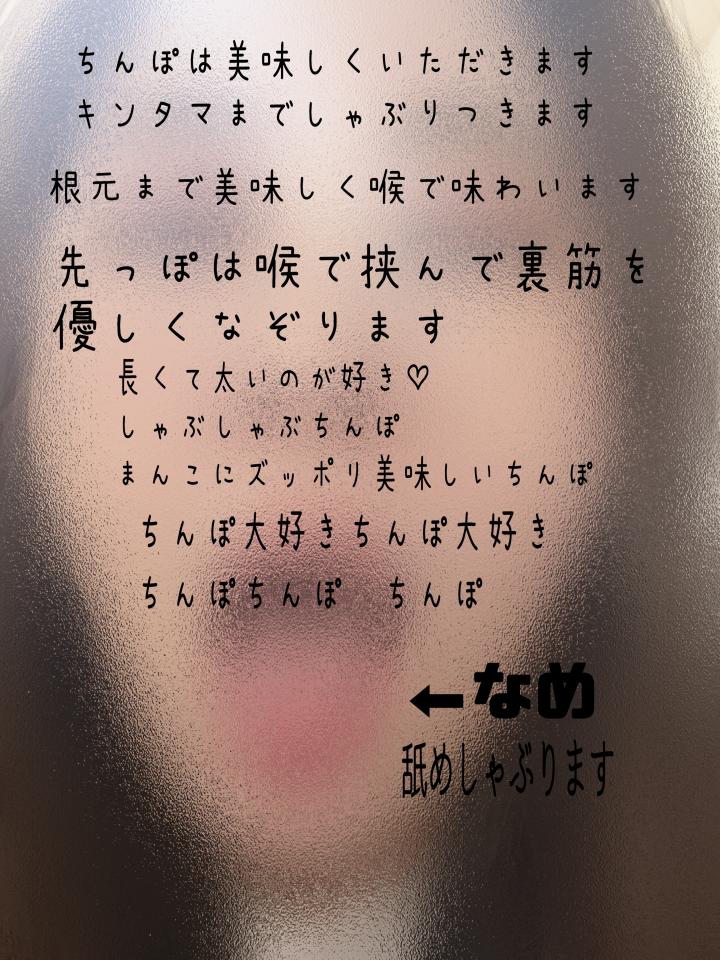 ちんぽは美味しくいただきます
キンタマまでしゃぶりつきます
根元まで美味しく喉で味わいます
先っぽは喉で挟んで裏筋を
優しくなぞります
長くて太いのが好き♡
しゃぶしゃぶちんぽ
まんこにズッポリ美味しいちんぽ
ちんぽ大好きちんぽ大好き
ちんぽちんぽ ちんぽ
←なめ
舐めしゃぶります